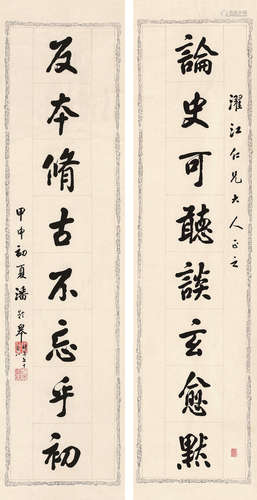 論史可聽談玄愈默
濯江仁兄大人正之
反本脩古不忘乎初
甲申初夏潘齡皋